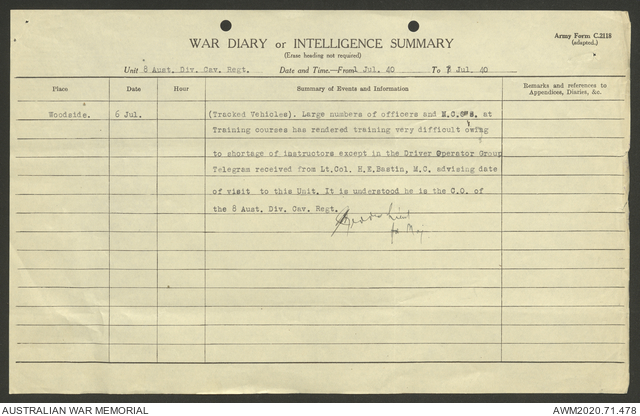 Army Form C.2118
(adapted.)
WAR DIARY or INTELLIGENCE SUMMARY
(Erase heading not required)
Unit 8 Aust. Div. Cav. Regt. Date and Time.—From 1 Jul. 40 To 7 Jul. 40
Place Date Hour Summary of Events and Information Remarks and references to
Appendices, Diaries, &c.
Woodside. 6 Jul. (Tracked Vehicles). Large numbers of officers and N.C.O's. at
Training courses has rendered training very difficult owing
to shortage of instructors except in the Driver Operator Group
Telegram received from Lt.Col. H.K.Bastin, M.C. advising date
of visit to this Unit. It is understood he is the C.O. of
the 8 Aust. Div. Cav. Regt.
Lieut
for Maj
AUSTRALIAN WAR MEMORIAL AWM2020.71.478